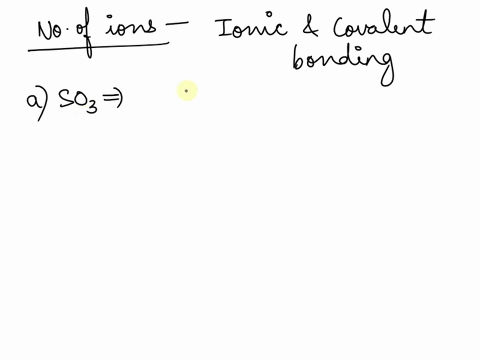 No. of ions — Ionic & Covalent
bonding
a) SO₃ ⇒